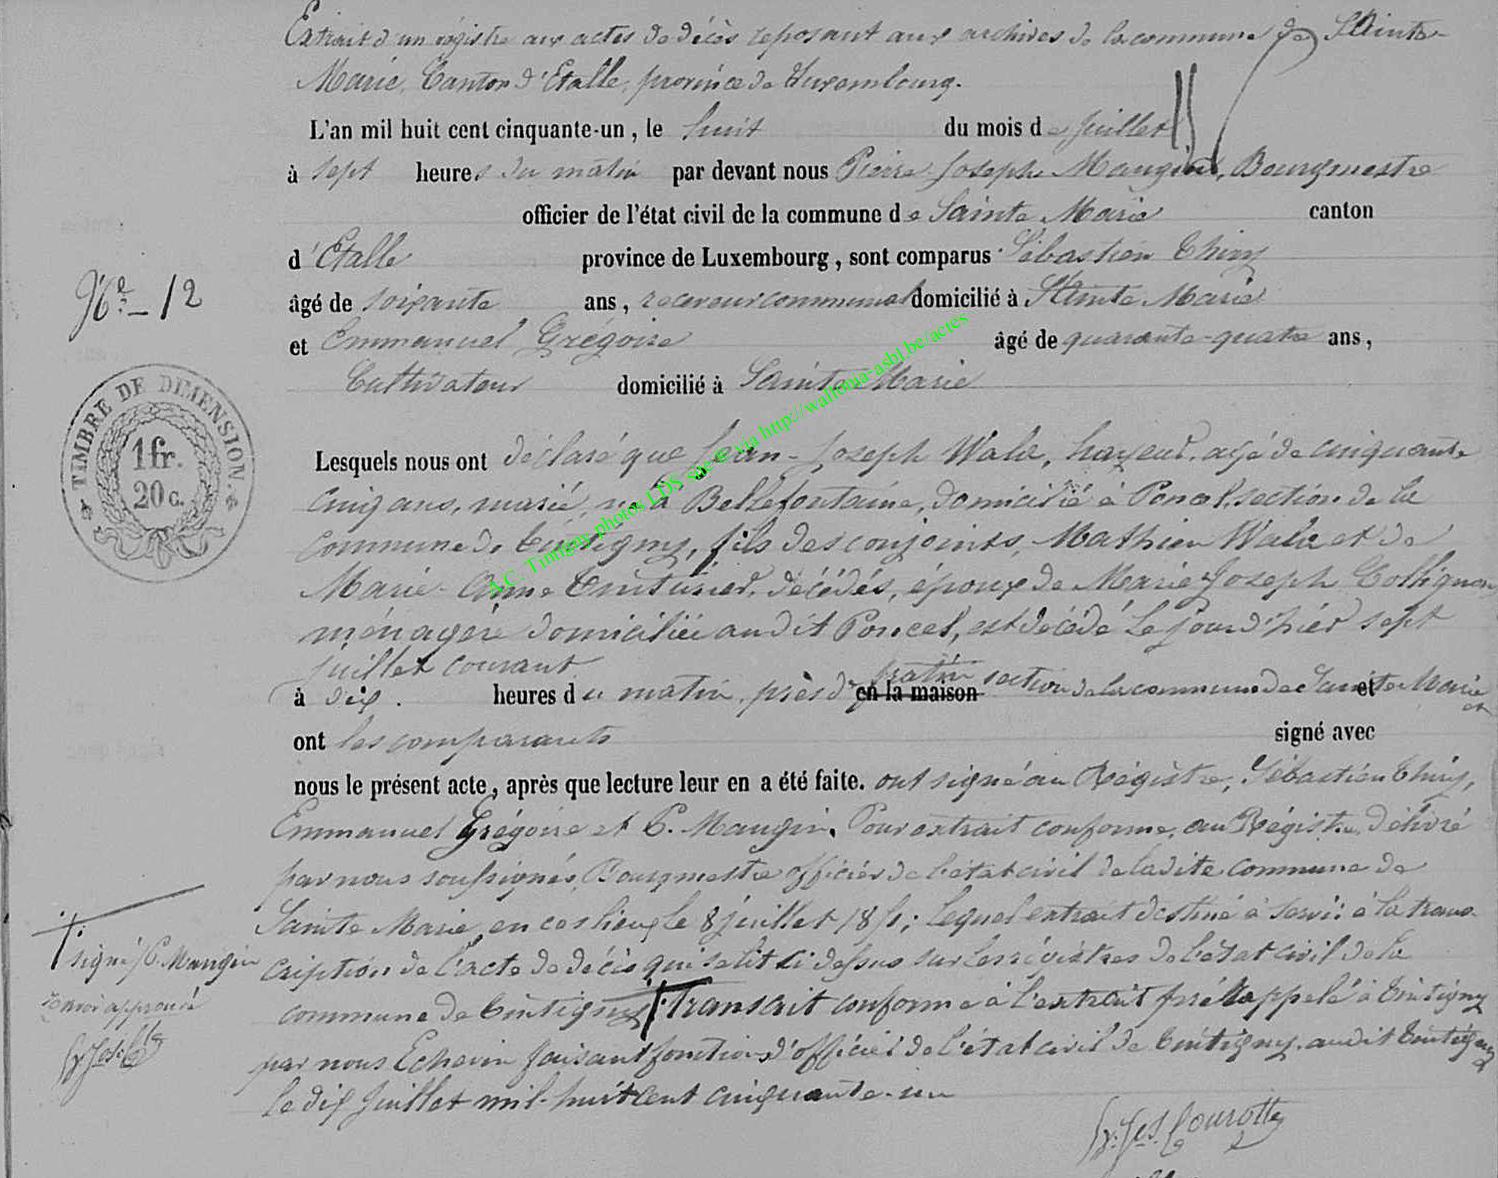 Extrait d'un régistre aux actes de décès reposant aux archives de la commune de Sainte-
Marie, Canton d'Etalle, province de Luxembourg.
L'an mil huit cent cinquante-un, le huit du mois de juillet
à sept heures du matin par devant nous Pierre Joseph Maugin, Bourgmestre
officier de l'état civil de la commune de Sainte Marie canton
d'Etalle province de Luxembourg, sont comparus Sébastien Thiry
Ne. 12
âgé de soixante ans, receveur communal domicilié à Sainte Marie
et Emmanuel Grégoire âgé de quarante-quatre ans,
Cultivateur domicilié à Sainte Marie
TIMBRE DE DIMENSION
1fr.
20c.
A.C. Tintigny photos LDS site © via http://wallonia-asbl.be/actes
Lesquels nous ont déclaré que Jean-Joseph Wale, agé de cinquante
cinq ans, marié, né à Bellefontaine, domicilié à Poncel, section de la
commune de Tintigny, fils des conjoints Mathieu Wale et de
Marie-Anne décédés, époux de Marie Joseph Collignon
ménagère domiciliée audit Poncel, est décédé le jour d'hier sept
juillet courant
à dix heures du matin, près de fratin en la maison section de la commune de Sainte Marie et
ont les comparants signé avec
nous le présent acte, après que lecture leur en a été faite. ont signé au Régistre, Sébastien Thiry,
Emmanuel Grégoire et P. Maugin. Pour extrait conforme au Régistre, délivré
par nous soussignés, Bourgmestre officier de l'état civil de ladite commune de
Sainte Marie, en ces lieux le 8 juillet 1851; lequel extrait destiné à servir à la trans-
cription de l'acte de décès qui se lit ci dessus sur les régistres de l'état civil de la
commune de Tintigny. Transcrit conforme à l'extrait prérappelé à Tintigny
signé P. Maugin
renvoi approuvé
par nous Echevin faisant fonctions d'officier de l'état civil de Tintigny, audit Tintigny
le dix juillet mil-huit cent cinquante-un